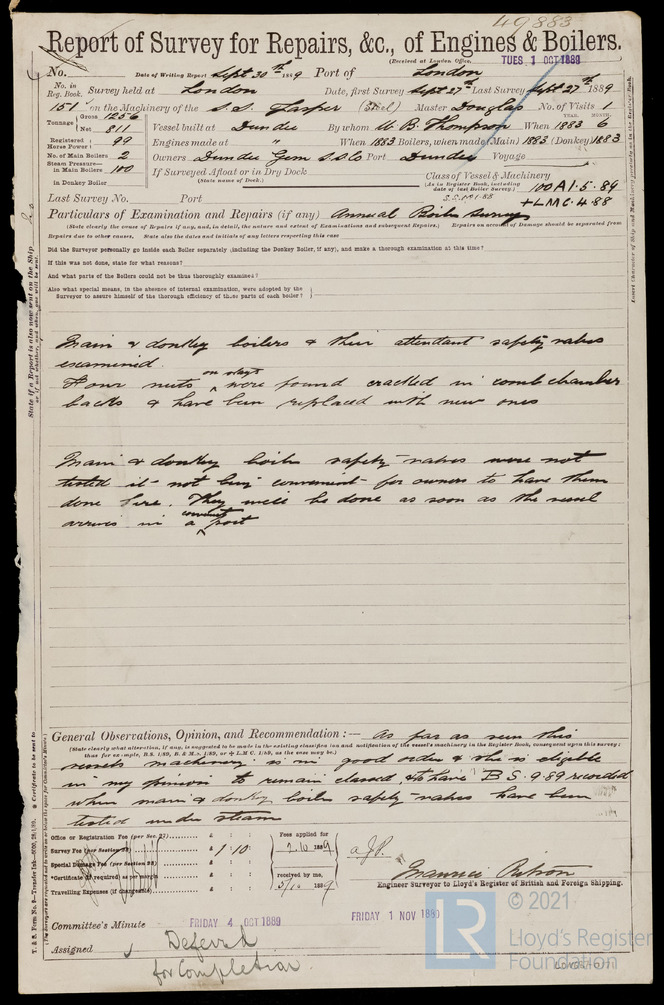 49883
Report of Survey for Repairs, &c., of Engines & Boilers.
(Received at London Office, TUES 1 OCT 1889
No. Date of Writing Report Sept 30th 1889 Port of London
No. in Reg. Book. Survey held at London Date, first Survey Sept 27th Last Survey Sept 27th 1889
151 on the Machinery of the S.S. (Steel) Master Douglas No. of Visits 1
Tonnage Gross 1256 Net 811 Vessel built at Dundee By whom W B. Thompson When YEAR. 1883 MONTH. 6
Registered Horse Power 99 Engines made at " When 1883 Boilers, when made (Main) 1883 (Donkey) 1883
No. of Main Boilers 2 Owners Dundee Gem S.S.Co Port Dundee Voyage
Steam Pressure in Main Boilers 100 If Surveyed Afloat or in Dry Dock
(State name of Dock.)
in Donkey Boiler
Class of Vessel & Machinery
(As in Register Book, including date of last Boiler Survey.) 100A1.5.89
+LMC.4.88
Last Survey No. Port
Particulars of Examination and Repairs (if any) Annual Boiler Survey
(State clearly the cause of Repairs if any, and, in detail, the nature and extent of Examinations and subsequent Repairs.) Repairs on account of Damage should be separated from
Repairs due to other causes. State also the dates and initials of any letters respecting this case
Did the Surveyor personally go inside each Boiler separately (including the Donkey Boiler, if any), and make a thorough examination at this time?
If this was not done, state for what reasons?
And what parts of the Boilers could not be thus thoroughly examined?
Also what special means, in the absence of internal examination, were adopted by the
Surveyor to assure himself of the thorough efficiency of those parts of each boiler?
Main & donkey boilers & their attendant safety valves
examined.
Four nuts on stays were found cracked in comb chamber
backs & have been replaced with new ones
Main & donkey boiler safety-valves were not
tested it not being convenient for owners to have them
done here. They will be done as soon as the vessel
arrives in a convenient port
General Observations, Opinion, and Recommendation :— As far as seen this
(State clearly what alteration, if any, is suggested to be made in the existing classification and notification of the vessel's machinery in the Register Book, consequent upon this survey;
thus for example, B.S. 1/89, B. & M.S. 1/89, or + L.M.C. 1/89, as the case may be.)
vessels machinery is in good order & she is eligible
in my opinion to remain classed, & to have B S. 9.89 recorded
when main & donkey boiler safety-valves have been
tested under steam
Office or Registration Fee (per Sec. 27) £ : :
Survey Fee (per Section 28) £ 1 : 10 :
Special Damage Fee (per Section 28) £ : :
*Certificate (if required) as per margin £ : :
Travelling Expenses (if chargeable) £ : :
Fees applied for
2.10 1889
received by me,
3/10 1889
Engineer Surveyor to Lloyd's Register of British and Foreign Shipping.
Committee's Minute FRIDAY 4 OCT 1889 FRIDAY 1 NOV 1889
Assigned Deferred
for Completion
© 2021
LR
Lloyd's Register
Foundation